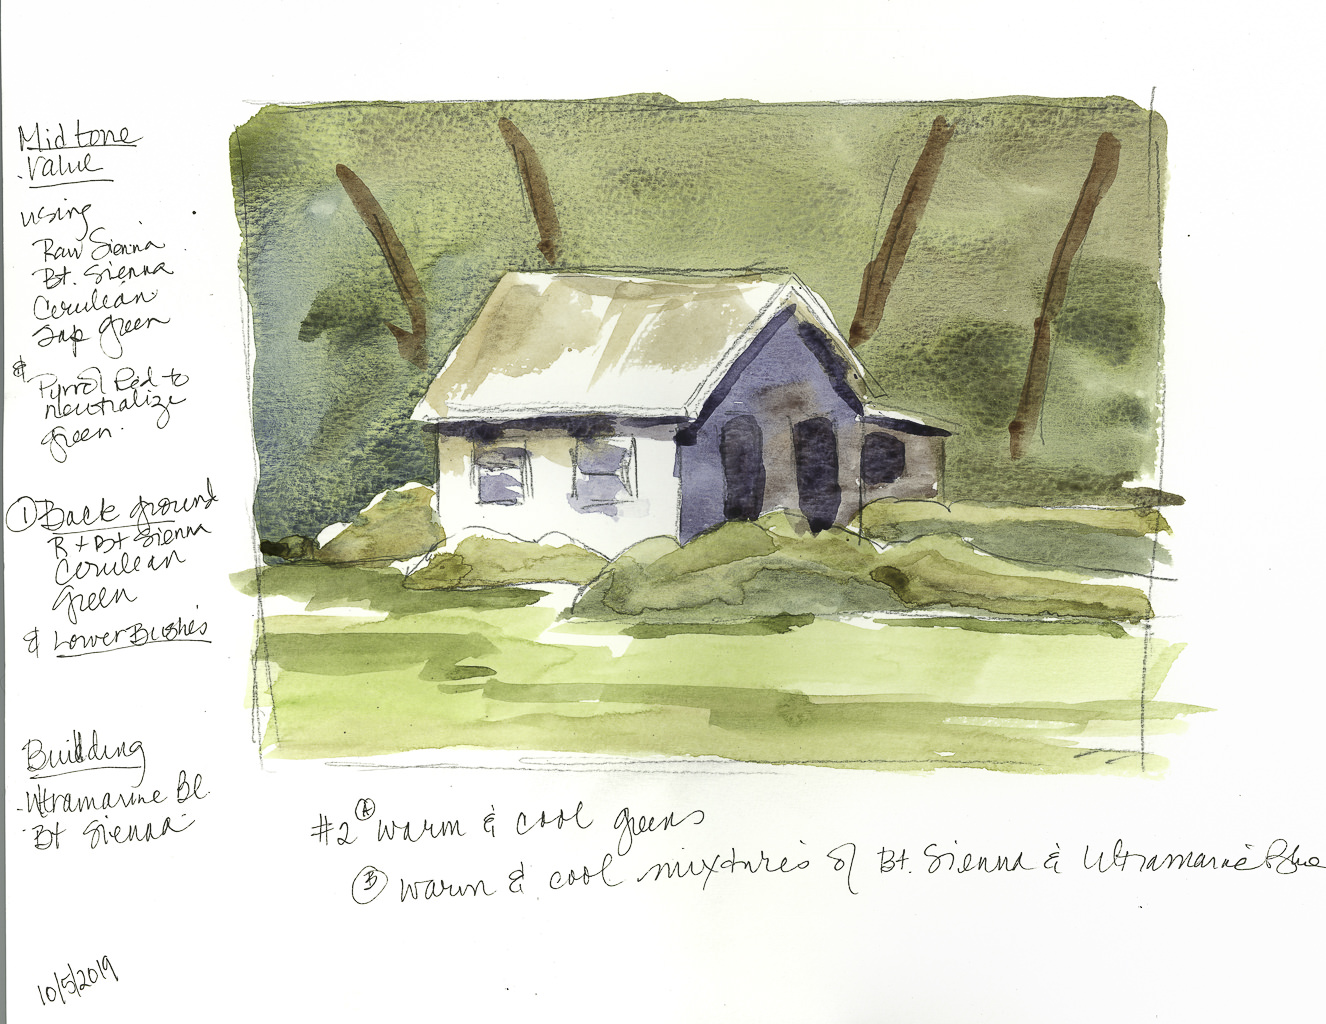 Midtone
Value
using
Raw Sienna
Bt. Sienna
Cerulean
Sap green
& Pyrrol Red to
neutralize
green.
① Back ground
R + Bt Sienna
Cerulean
Green
& Lower Bushes
Building
Ultramarine Bl.
Bt Sienna
#2 Ⓐ warm & cool greens
Ⓑ warm & cool mixtures of Bt. Sienna & Ultramarine Blue
10/5/2019